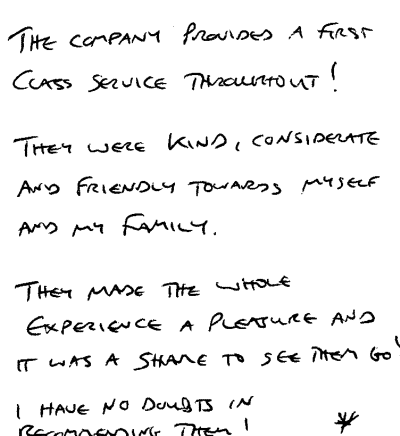 THE COMPANY PROVIDED A FIRST
CLASS SERVICE THROUGHTOUT!
THEY WERE KIND, CONSIDERATE
AND FRIENDLY TOWARDS MYSELF
AND MY FAMILY.
THEY MADE THE WHOLE
EXPERIENCE A PLEASURE AND
IT WAS A SHAME TO SEE THEM GO!
I HAVE NO DOUBTS IN
RECOMMENDING THEM!